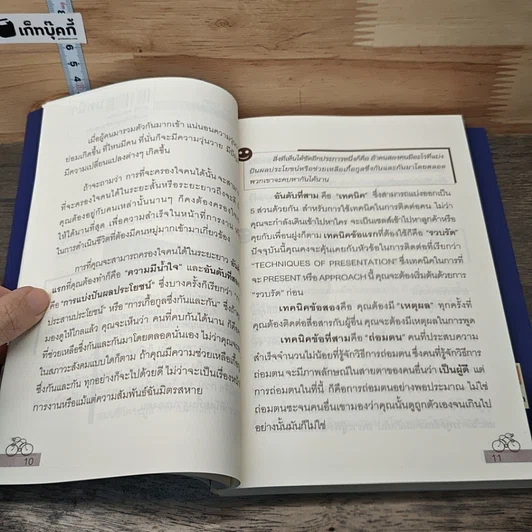 เก็ทบุ๊คกี้
6 5 4
เมื่อผู้คนมารวมตัวกันมากเข้า แน่นอนความ
ย่อมเกิดขึ้น ที่ไหนมีคน ที่นั่นก็จะมีความวุ่นวาย
มีความเปลี่ยนแปลงต่างๆ เกิดขึ้น
ถ้าจะถามว่า การที่จะครองใจคนได้นั้น จะสา
ที่จะครองใจคนได้ในระยะสั้นหรือระยะยาวถึงจะดี
คุณต้องอยู่กับคนเหล่านั้นนานๆ ก็คงต้องครองใจ
ให้ได้นานที่สุด เพื่อความสำเร็จในหน้าที่การงาน
ในการดำเนินชีวิตที่ต้องมีคนหมู่มากเข้ามาเกี่ยวข้อง
การที่คุณจะสามารถครองใจคนได้ในระยะยาว
แรกที่คุณต้องทำก็คือ "ความมีน้ำใจ" และอันดับที่สอง
คือ "การแบ่งปันผลประโยชน์" ซึ่งบางครั้งก็เรียกว่า
ประสานประโยชน์" หรือ "การเกื้อกูลซึ่งกันและกัน" ซึ่งถ้า
มองดูให้ไกลแล้ว คุณจะเห็นว่า คนที่คบกันได้นาน ก็คือ
ที่ช่วยเหลือซึ่งกันและกันมาโดยตลอดนั่นเอง ไม่ว่าคุณจะ
ในสภาวะสังคมแบบใดก็ตาม ถ้าคุณมีความช่วยเหลือเกื้อ
ซึ่งกันและกัน ทุกอย่างก็จะไปด้วยดี ไม่ว่าจะเป็นเรื่องหน้า
การงานหรือแม้แต่ความสัมพันธ์ฉันมิตรสหาย
10
สิ่งที่เห็นได้ชัดอีกประการหนึ่งก็คือ ถ้าคนสองคนมีอะไรที่แบ่ง
ปันผลประโยชน์หรือช่วยเหลือเกื้อกูลซึ่งกันและกันมาโดยตลอด
พวกเขาจะคบหากันได้นาน
อันดับที่สาม คือ "เทคนิค" ซึ่งสามารถแบ่งออกเป็น
5 ส่วนด้วยกัน สำหรับการใช้เทคนิคในการติดต่อคน ไม่ว่า
คุณจะกำลังเดินเข้าไปหาใคร จะเป็นเซลส์เข้าไปหาลูกค้าหรือ
คุยกับเพื่อนฝูงก็ตาม เทคนิคข้อแรกที่ต้องใช้ก็คือ "รวบรัด"
ปัจจุบันนี้คุณคงจะคุ้นเคยกับหัวข้อในการติดต่อที่เรียกว่า
"TECHNIQUES OF PRESENTATION" ซึ่งเทคนิคในการที่
จะ PRESENT หรือ APPROACH นี้ คุณจะต้องเริ่มต้นด้วยการ
"รวบรัด" ก่อน
เทคนิคข้อสองคือ คุณต้องมี "เหตุผล" ทุกครั้งที่
คุณต้องติดต่อสื่อสารกับผู้อื่น คุณจะต้องมีเหตุผลในการพูด
เทคนิคข้อที่สามคือ "ถ่อมตน" คนที่ประสบความ
สำเร็จจำนวนไม่น้อยที่รู้จักวิธีการถ่อมตน ซึ่งคนที่รู้จักวิธีการ
ถ่อมตน จะมีภาพลักษณ์ในสายตาของคนอื่นว่า เป็นผู้ดี แต่
การถ่อมตนในที่นี้ ก็คือการถ่อมตนอย่างพอประมาณ ไม่ใช่
ถ่อมตนซะจนคนอื่นเขามองว่าคุณนั้นดูถูกตัวเองจนเกินไป
อย่างนั้นมันก็ไม่ใช่
11